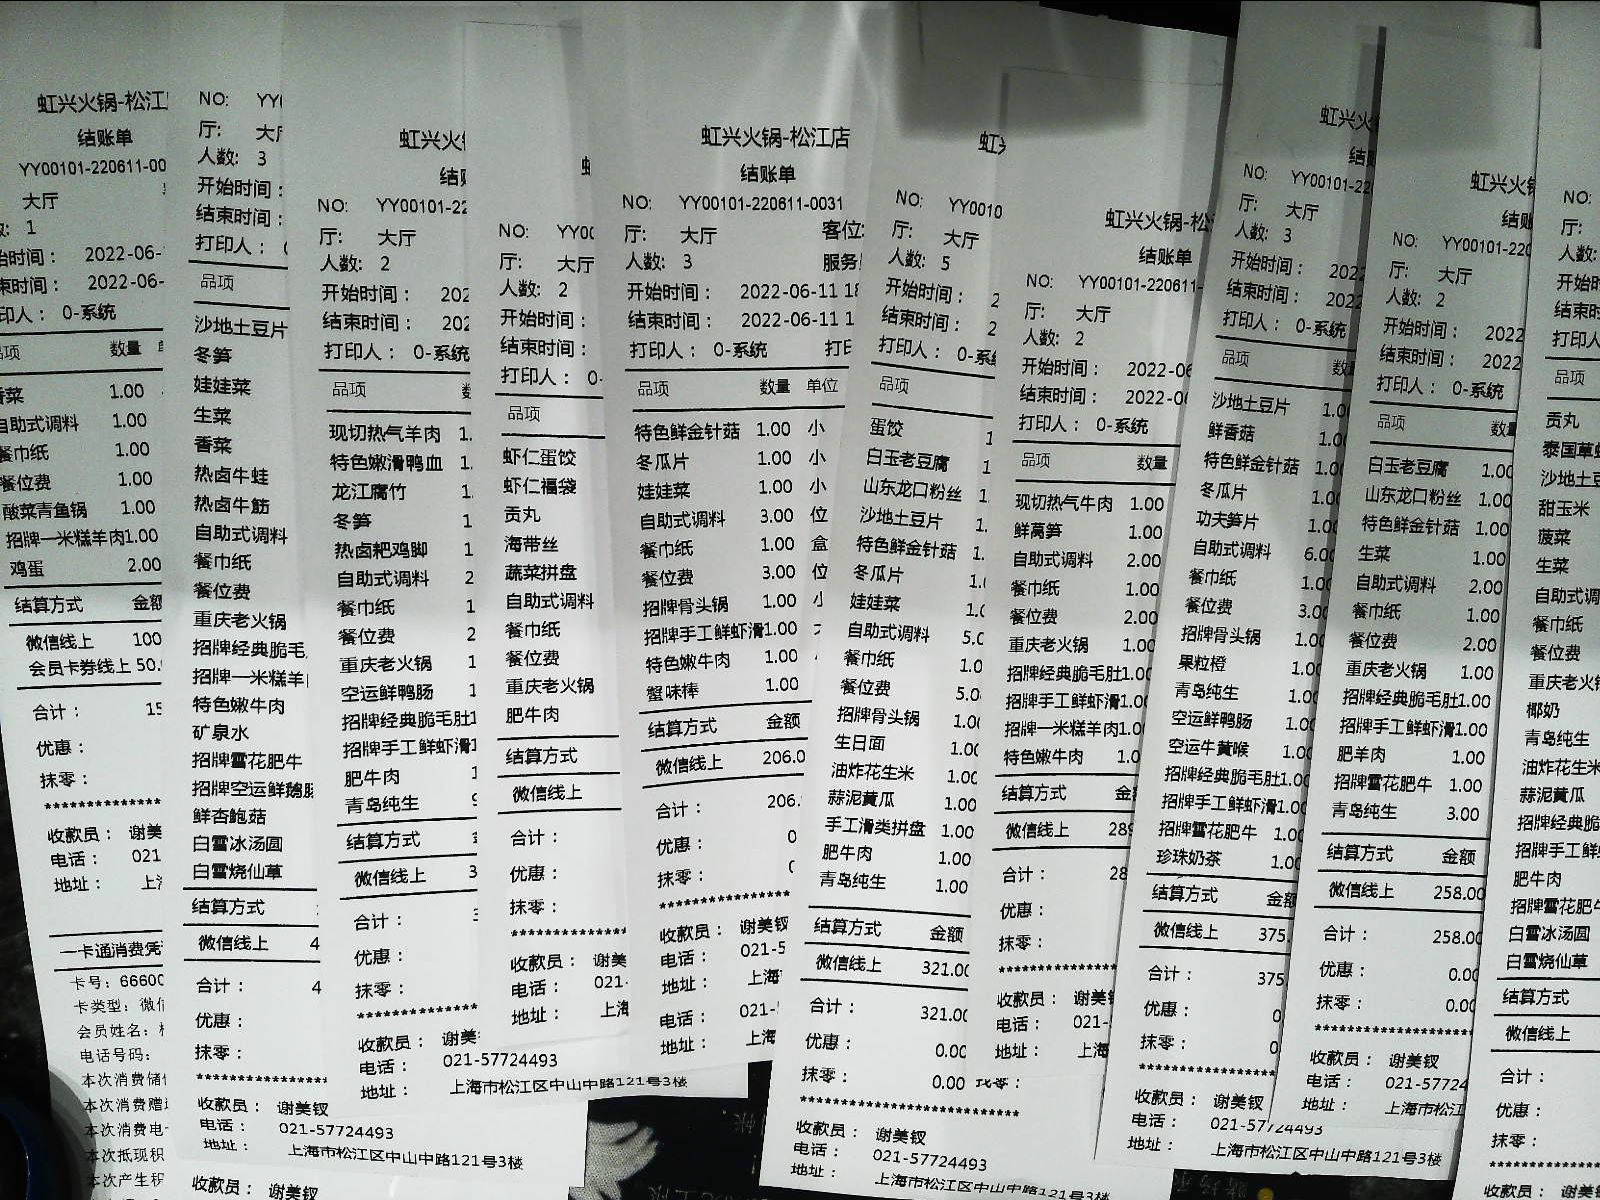 虹兴火锅-松江
结账单
YY00101-220611-00
大厅
1
始时间： 2022-06-
束时间： 2022-06-
印人： 0-系统
品项 数量
香菜 1.00
自助式调料 1.00
餐巾纸 1.00
餐位费 1.00
酸菜青鱼锅 1.00
招牌一米糕羊肉1.00
鸡蛋 2.00
结算方式 金额
微信线上 100
会员卡券线上 50.
合计： 15
优惠：
抹零：
********************
收款员： 谢美
电话： 021
地址： 上
一卡通消费凭
卡号：66600
卡类型：微信
会员姓名：
电话号码：
本次消费储
本次消费赠
本次消费电
本次抵现积
本次产生积
NO: YY
厅： 大厅
人数: 3
开始时间：
结束时间：
打印人：
品项
沙地土豆片
冬笋
娃娃菜
生菜
香菜
热卤牛蛙
热卤牛筋
自助式调料
餐巾纸
餐位费
重庆老火锅
招牌经典脆毛
招牌一米糕羊
特色嫩牛肉
矿泉水
招牌雪花肥牛
招牌空运鲜鹅
鲜杏鲍菇
白雪冰汤圆
白雪烧仙草
结算方式
微信线上 4
合计： 4
优惠：
抹零：
********************
收款员： 谢美钗
电话： 021-57724493
地址： 上海市松江区中山中路121号3楼
收款员： 谢美钗
虹兴火
结
NO: YY00101-22
厅： 大厅
人数: 2
开始时间： 202
结束时间： 202
打印人： 0-系统
品项 数
现切热气羊肉 1.
特色嫩滑鸭血 1.
龙江腐竹 1.
冬笋 1
热卤耙鸡脚 1
自助式调料 2
餐巾纸 1
餐位费 2
重庆老火锅 1
空运鲜鸭肠 1
招牌经典脆毛肚1
招牌手工鲜虾滑1
肥牛肉 1
青岛纯生 9
结算方式
微信线上 3
合计： 3
优惠：
抹零：
********************
收款员： 谢美
电话： 021-57724493
地址： 上海市松江区中山中路121号3楼
NO: YY00
厅： 大厅
人数: 2
开始时间：
结束时间：
打印人： 0-
品项
虾仁蛋饺
虾仁福袋
贡丸
海带丝
蔬菜拼盘
自助式调料
餐巾纸
餐位费
重庆老火锅
肥牛肉
结算方式
微信线上
合计：
优惠：
抹零：
********************
收款员： 谢美
电话： 021-
地址： 上海
虹兴火锅-松江店
结账单
NO: YY00101-220611-0031
厅： 大厅 客位
人数: 3 服务
开始时间： 2022-06-11 18
结束时间： 2022-06-11 1
打印人： 0-系统 打印
品项 数量 单位
特色鲜金针菇 1.00 小
冬瓜片 1.00 小
娃娃菜 1.00 小
自助式调料 3.00 位
餐巾纸 1.00 盒
餐位费 3.00 位
招牌骨头锅 1.00 小
招牌手工鲜虾滑1.00
特色嫩牛肉 1.00
蟹味棒 1.00
结算方式 金额
微信线上 206.0
合计： 206.
优惠： 0
抹零：
********************
收款员： 谢美钗
电话： 021-5
地址： 上海
电话： 021-
地址： 上海
虹
NO: YY0010
厅： 大厅
人数: 5
开始时间： 2
结束时间： 2
打印人： 0-系
品项
蛋饺 1
白玉老豆腐 1
山东龙口粉丝 1
沙地土豆片 1
特色鲜金针菇 1.
冬瓜片 1.
娃娃菜 1.
自助式调料 5.0
餐巾纸 1.0
餐位费 5.0
招牌骨头锅 1.0
生日面 1.00
油炸花生米 1.00
蒜泥黄瓜 1.00
手工滑类拼盘 1.00
肥牛肉 1.00
青岛纯生 1.00
结算方式 金额
微信线上 321.00
合计： 321.00
优惠： 0.00
抹零： 0.00
********************
收款员： 谢美钗
电话： 021-57724493
地址： 上海市松江区中山中路121号3楼
虹兴火锅-松
结账单
NO: YY00101-220611-
厅： 大厅
人数: 2
开始时间： 2022-06
结束时间： 2022-0
打印人： 0-系统
品项 数量
现切热气牛肉 1.00
鲜莴笋 1.00
自助式调料 2.00
餐巾纸 1.00
餐位费 2.00
重庆老火锅 1.00
招牌经典脆毛肚1.00
招牌手工鲜虾滑1.00
招牌一米糕羊肉1.00
特色嫩牛肉 1.0
结算方式 金额
微信线上 289
合计： 28
优惠：
抹零：
********************
收款员： 谢美
电话： 021-
地址： 上海
虹兴火
结
NO: YY00101-22
厅： 大厅
人数: 3
开始时间： 2022
结束时间： 202
打印人： 0-系统
品项 数
沙地土豆片 1.0
鲜香菇 1.0
特色鲜金针菇 1.00
冬瓜片 1.00
功夫笋片 1.00
自助式调料 6.00
餐巾纸 1.00
餐位费 3.00
招牌骨头锅 1.00
果粒橙 1.00
青岛纯生 1.00
空运鲜鸭肠 1.00
空运牛黄喉 1.00
招牌经典脆毛肚1.00
招牌手工鲜虾滑1.00
招牌雪花肥牛 1.00
珍珠奶茶 1.00
结算方式 金额
微信线上 375.
合计： 375
优惠： 0
抹零： 0
********************
收款员： 谢美钗
电话： 021-57724493
地址： 上海市松江区中山中路121号3楼
虹兴火锅
结账
NO: YY00101-220
厅： 大厅
人数: 2
开始时间： 2022
结束时间： 2022
打印人： 0-系统
品项 数量
白玉老豆腐 1.00
山东龙口粉丝 1.00
特色鲜金针菇 1.00
生菜 1.00
自助式调料 2.00
餐巾纸 1.00
餐位费 2.00
重庆老火锅 1.00
招牌经典脆毛肚1.00
招牌手工鲜虾滑1.00
肥羊肉 1.00
招牌雪花肥牛 1.00
青岛纯生 3.00
结算方式 金额
微信线上 258.00
合计： 258.00
优惠： 0.00
抹零： 0.00
********************
收款员： 谢美钗
电话： 021-57724
地址： 上海市松江
NO:
厅：
人数:
开始时
结束时
打印人
品项
贡丸
泰国草虾
沙地土豆
甜玉米
菠菜
生菜
自助式调
餐巾纸
餐位费
重庆老火锅
椰奶
青岛纯生
油炸花生米
蒜泥黄瓜
招牌经典脆
招牌手工鲜
肥牛肉
招牌雪花肥牛
白雪冰汤圆
白雪烧仙草
结算方式
微信线上
合计：
优惠：
抹零：
********************
收款员： 谢